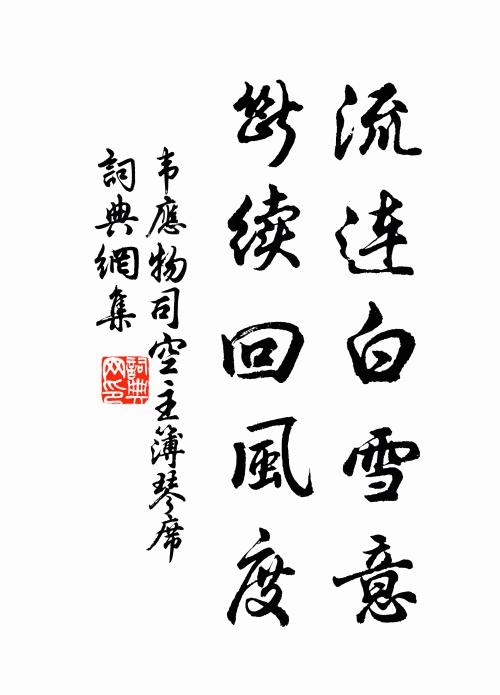 流连白雪意
断续回風度
韦應物司空主簿琴席
詞典網集
詞典
网印